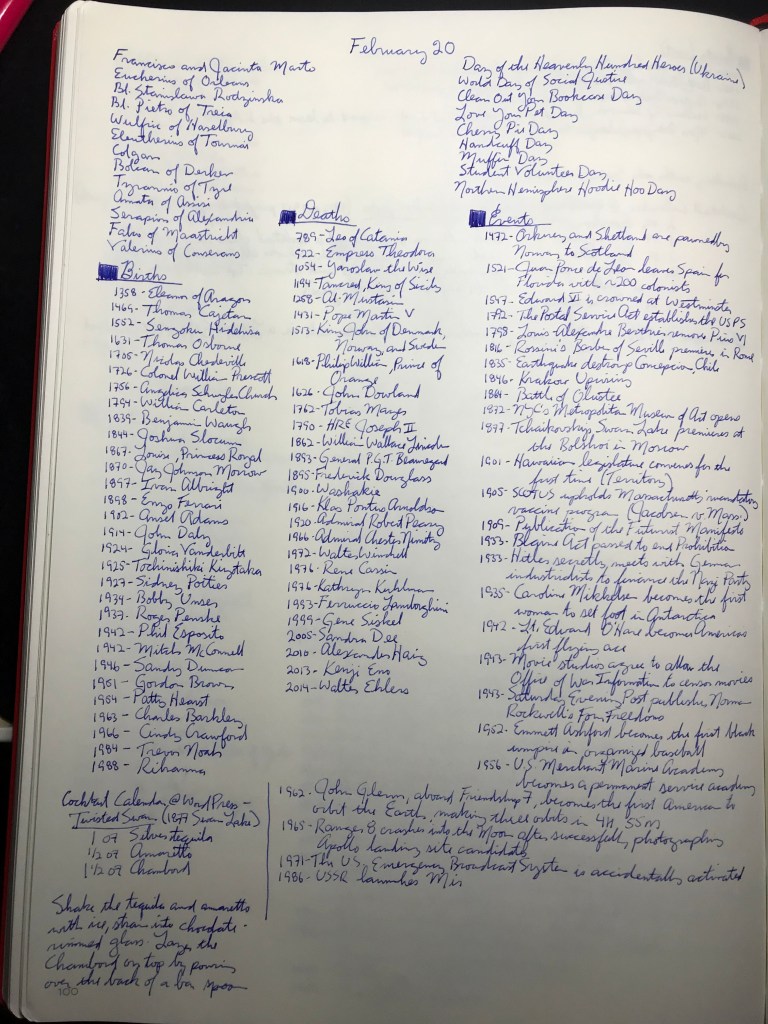 February 20
Francisco and Jacinta Marto
Eucherius of Orleans
Bl. Stanislawa Rodzinska
Bl. Pietro of Treia
Wulfric of Haselbury
Eleutherius of Tournai
Colgan
Bolcan of Derken
Tyrannio of Tyre
Amata of Assisi
Serapion of Alexandria
Falco of Maastricht
Valerius of Conserans
Day of the Heavenly Hundred Heroes (Ukraine)
World Day of Social Justice
Clean Out Your Bookcase Day
Love Your Pet Day
Cherry Pie Day
Handcuff Day
Muffin Day
Student Volunteer Day
Northern Hemisphere Hoodie Hoo Day
Births
1358 - Eleanor of Aragon
1469 - Thomas Cajetan
1552 - Sengoku Hidehisa
1631 - Thomas Osborne
1705 - Nicolas Chedeville
1726 - Colonel William Prescott
1756 - Angelica Schuyler Church
1794 - William Carleton
1839 - Benjamin Waugh
1844 - Joshua Slocum
1867 - Louise, Princess Royal
1870 - Jay Johnson Morrow
1897 - Ivan Albright
1898 - Enzo Ferrari
1902 - Ansel Adams
1914 - John Daly
1924 - Gloria Vanderbilt
1925 - Tochinishiki Kiyotaka
1927 - Sidney Poitier
1934 - Bobby Unser
1937 - Roger Penske
1942 - Phil Esposito
1942 - Mitch McConnell
1946 - Sandy Duncan
1951 - Gordon Brown
1954 - Patty Hearst
1963 - Charles Barkley
1966 - Cindy Crawford
1984 - Trevor Noah
1988 - Rihanna
Deaths
789 - Leo of Catania
922 - Empress Theodora
1054 - Yaroslav the Wise
1194 - Tancred, King of Sicily
1258 - Al-Mustasim
1431 - Pope Martin V
1513 - King John of Denmark,
Norway, and Sweden
1618 - Philip William, Prince of
Orange
1626 - John Dowland
1762 - Tobias Mayer
1790 - HRE Joseph II
1862 - William Wallace Lincoln
1893 - General P.G.T. Beauregard
1895 - Frederick Douglass
1900 - Washakie
1916 - Klas Pontus Arnoldson
1920 - Admiral Robert Peary
1966 - Admiral Chester Nimitz
1972 - Walter Winchell
1976 - Rene Cassin
1976 - Kathryn Kuhlman
1993 - Ferruccio Lamborghini
1999 - Gene Siskel
2005 - Sandra Dee
2010 - Alexander Haig
2013 - Kenji Eno
2014 - Walter Ehlers
Events
1472 - Orkney and Shetland are pawned by
Norway to Scotland
1521 - Juan Ponce de Leon leaves Spain for
Florida with ~200 colonists
1547 - Edward VI is crowned at Westminster
1792 - The Postal Service Act establishes the USPS
1798 - Louis-Alexandre Berthier removes Pius VI
1816 - Rossini's Barber of Seville premieres in Rome
1835 - Earthquake destroys Concepcion, Chile
1846 - Krakow Uprising
1864 - Battle of Olustee
1872 - NYC's Metropolitan Museum of Art opens
1877 - Tchaikovsky's Swan Lake premieres at
the Bolshoi in Moscow
1901 - Hawaiian legislature convenes for the
first time (Territory)
1905 - SCOTUS upholds Massachusetts mandatory
vaccine program (Jacobson v. Mass.)
1909 - Publication of the Futurist Manifesto
1933 - Blaine Act passed to end Prohibition
1933 - Hitler secretly meets with German
industrialists to finance the Nazi Party
1935 - Caroline Mikkelsen becomes the first
woman to set foot in Antarctica
1942 - Lt. Edward O'Hare becomes America's
first flying ace
1943 - Movie studios agree to allow the
Office of War Information to censor movies
1943 - Saturday Evening Post publishes Norman
Rockwell's Four Freedoms
1952 - Emmett Ashford becomes the first black
umpire in organized baseball
1956 - U.S. Merchant Marine Academy
becomes a permanent service academy
1962 - John Glenn, aboard Friendship 7, becomes the first American to
orbit the Earth, making three orbits in 4H 55M
1965 - Ranger 8 crashes into the Moon after successfully photographing
Apollo landing site candidates
1971 - The U.S. Emergency Broadcast System is accidentally activated
1986 - USSR launches Mir
Cocktail Calendar @ WordPress -
Twisted Swan (1877 Swan Lake)
1 oz Silver tequila
1/2 oz Amaretto
1 1/2 oz Chambord
Shake the tequila and amaretto
with ice, strain into chocolate-
rimmed glass. Layer the
Chambord on top by pouring
over the back of a bar spoon
100